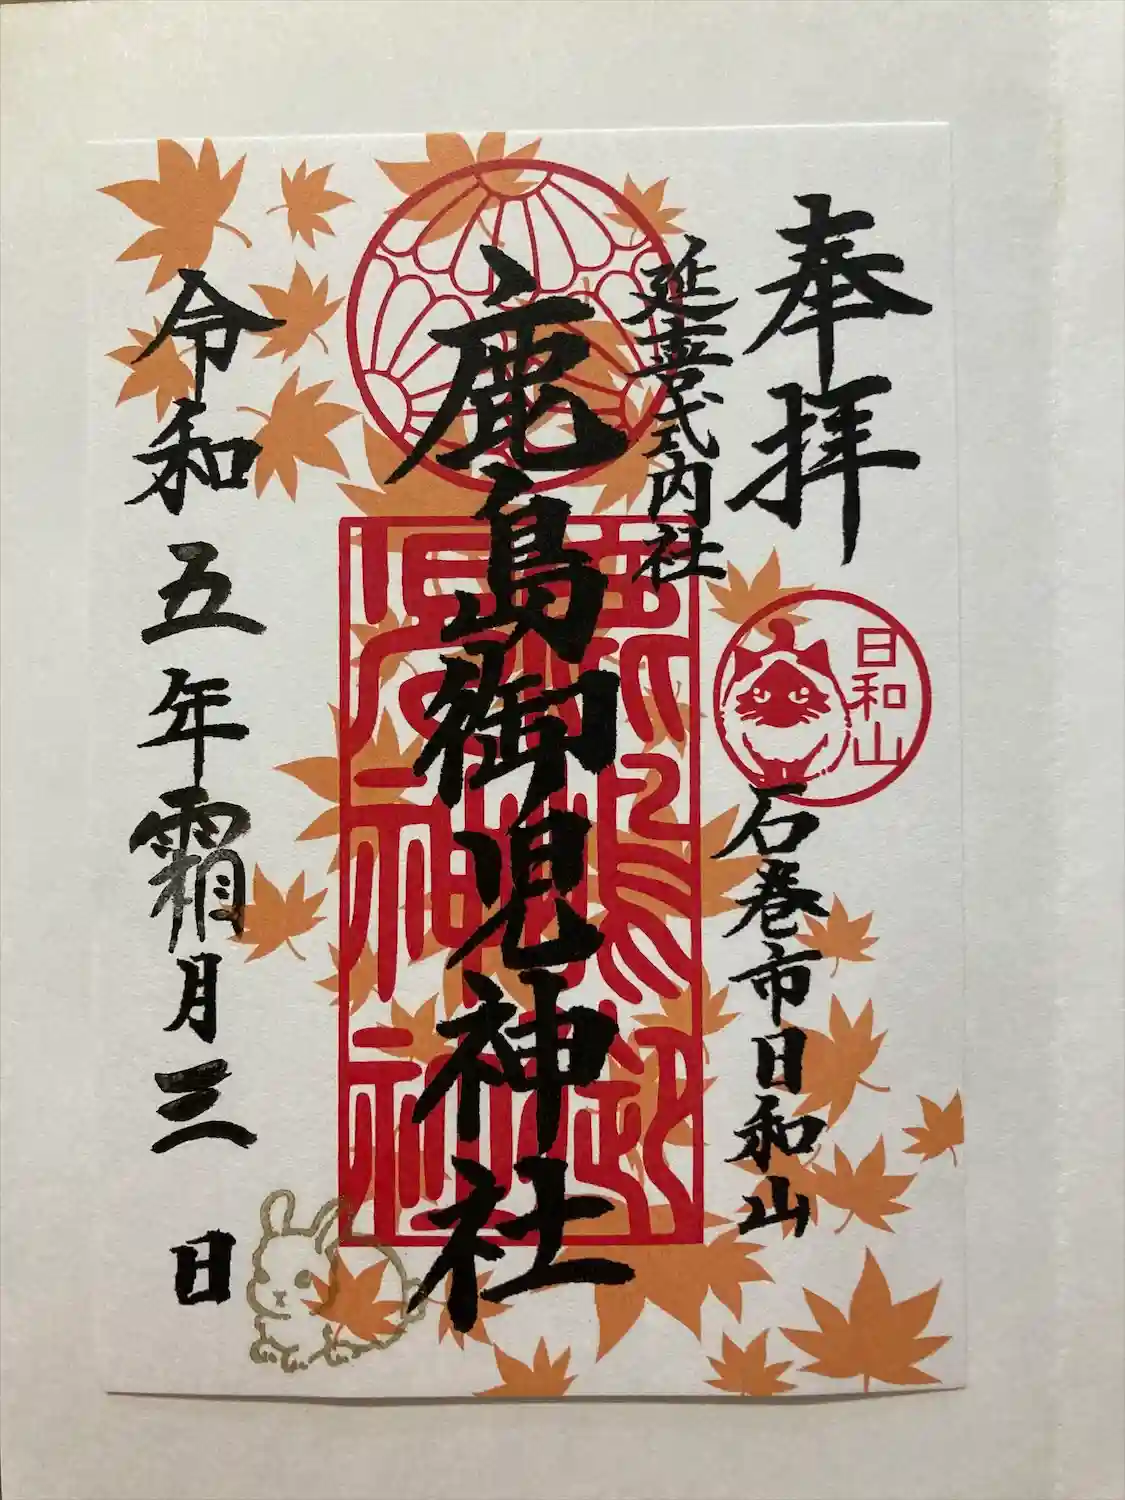 奉拝
延喜式内社
日和山
石巻市日和山
鹿島御児神社
令和五年霜月三日